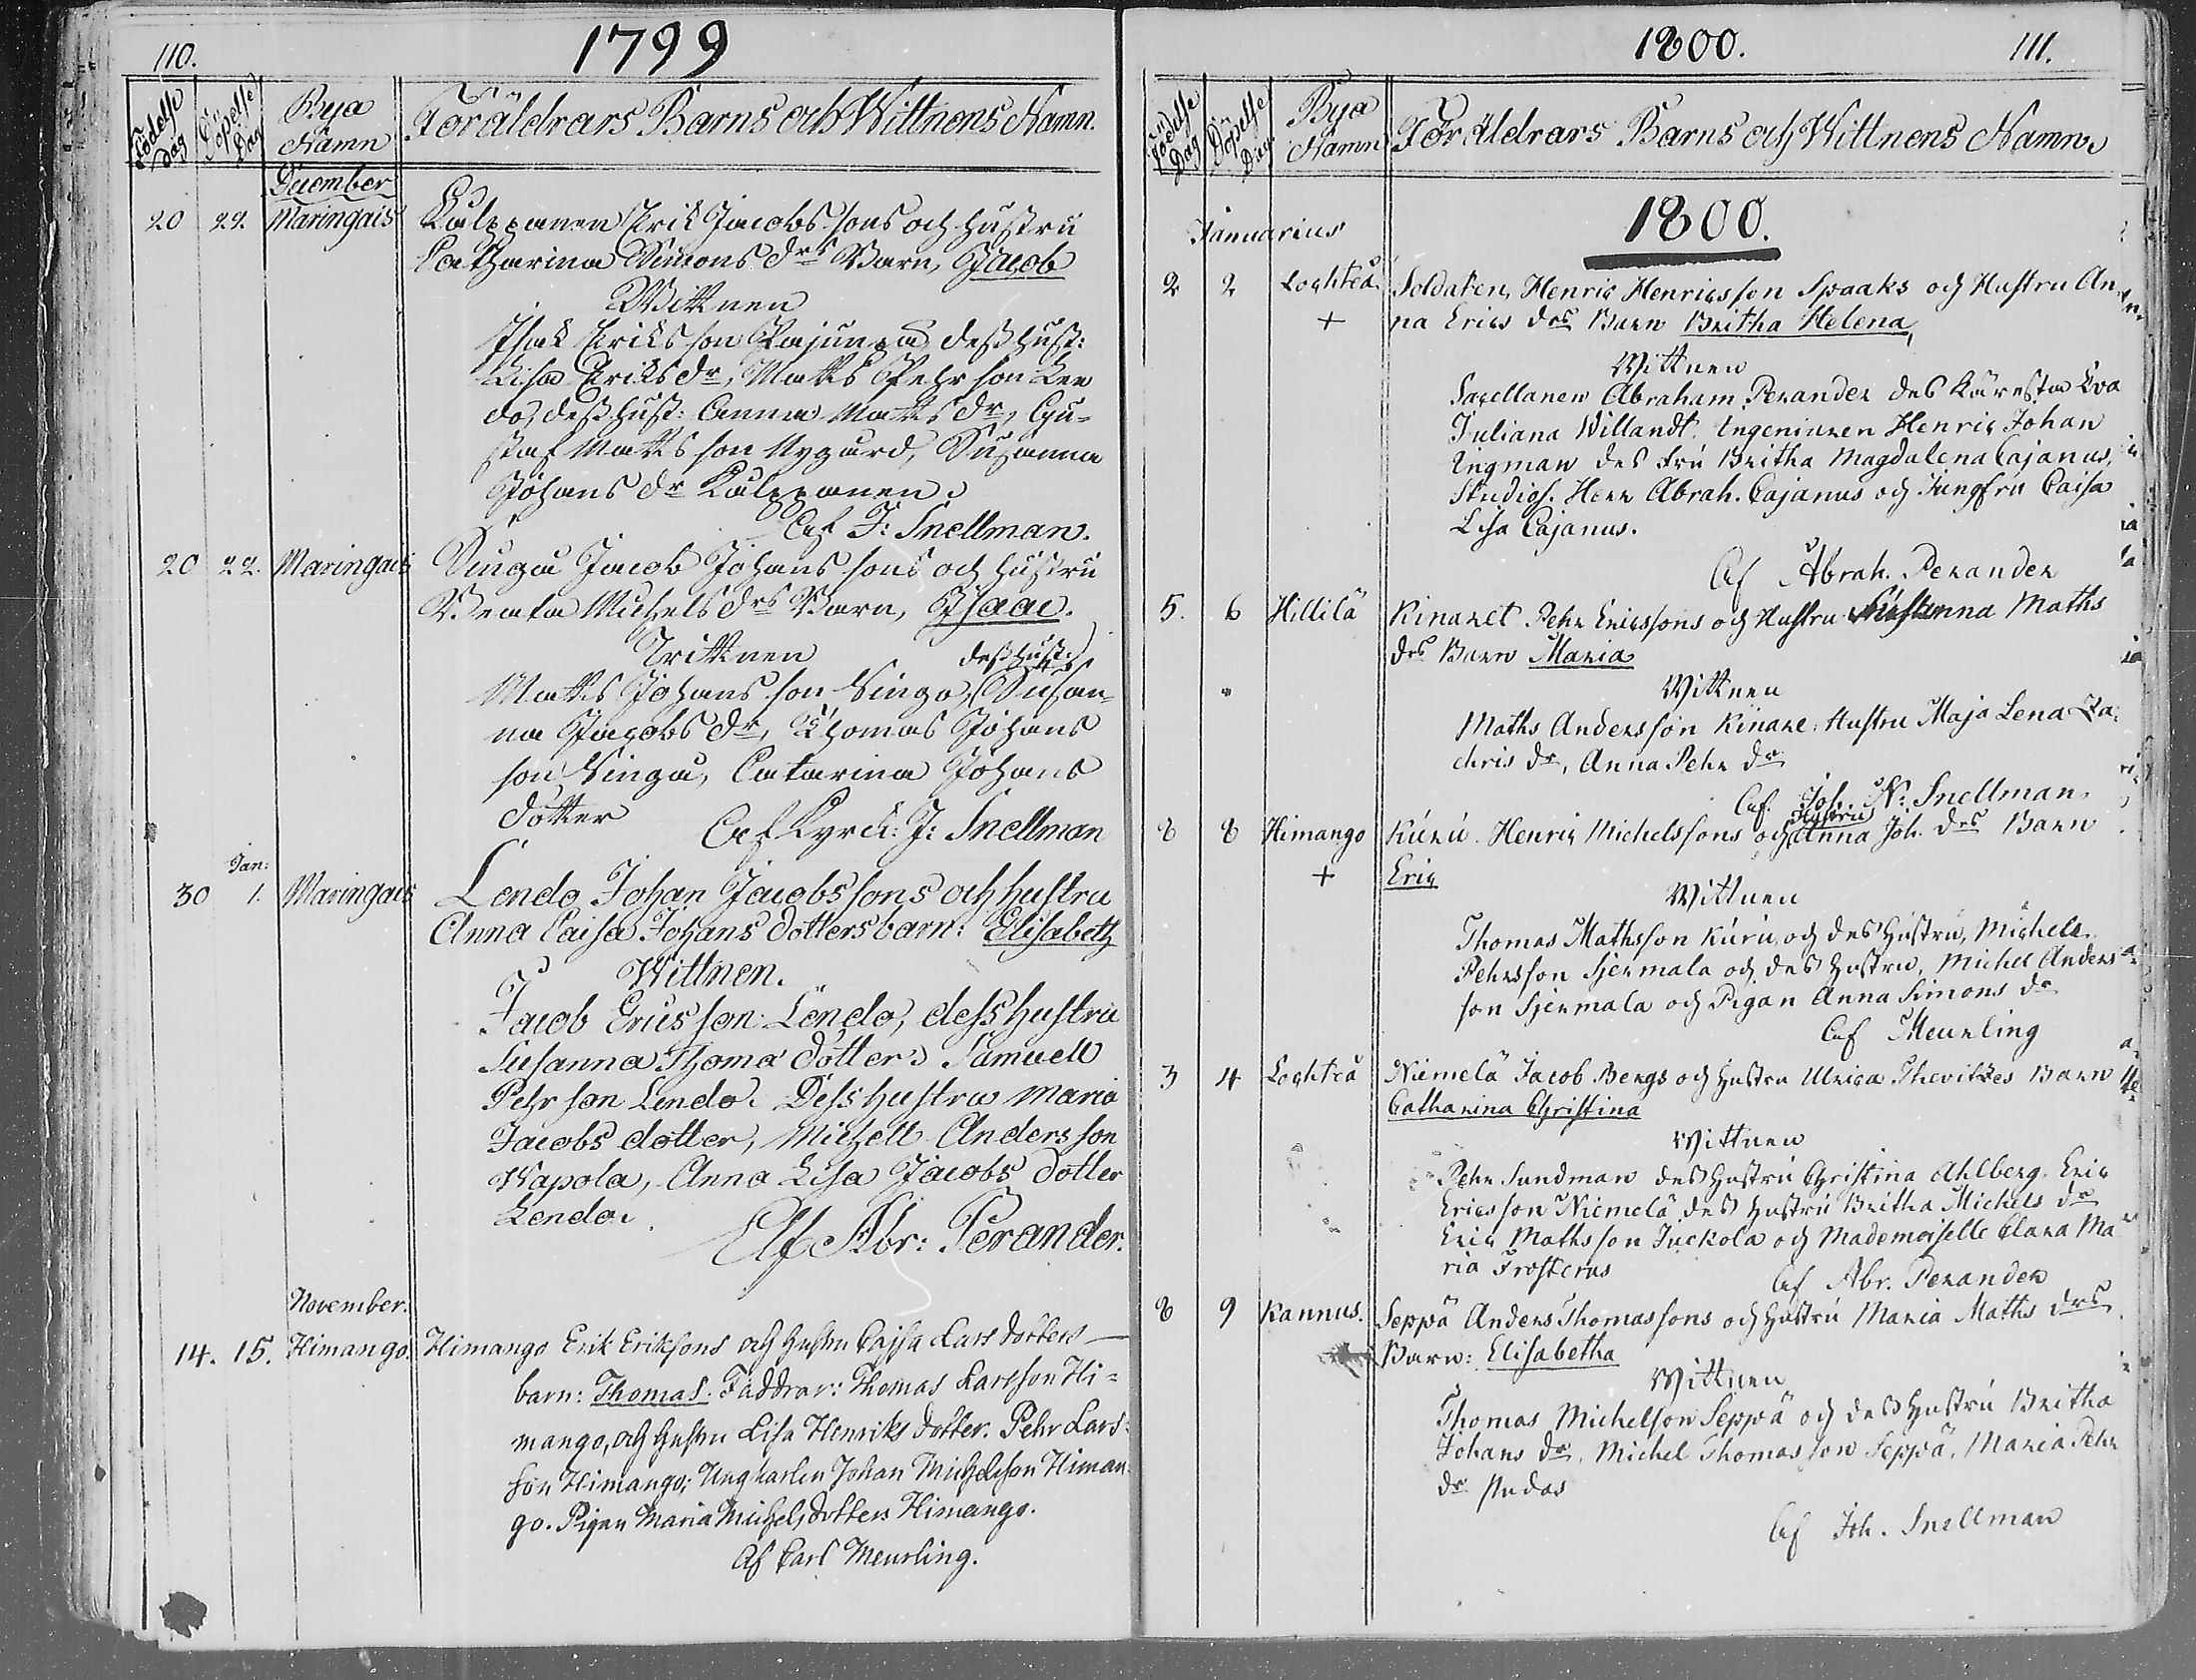 110.
1799
Födelse Dag
Döpelse Dag
Bya Namn
Föräldrars Barns och Wittnens Namn.
December
20 22. Maringais Kulppanen Erik Jacobs sons och hustru
Catharina Simons drs Barn, Jacob
Wittnen
Isak Eriks son Pajunpä dess hust:
Lisa Eriks dr, Matts Pehr son Len
do, dess hust: Anna Matts dr, Gu-
staf Matts son Nygård, Susanna
Johans dr Kulppanen.
Af J: Snellman.
20 22. Maringais Singa Jacob Johans sons och hustru
Beata Michels drs Barn, Isaac.
Wittnen
dess hust:
Matts Johans son Singa, Susan-
na Jacobs dr, Thomas Johans
son Singa, Catarina Johans
dotter
Af Kyrck: J: Snellman
Jan:
30 1. Maringais Lendo Johan Jacobssons och hustru
Anna Caisa Johans dotters barn: Elisabeth
Wittnen.
Jacob Ericsson Lendo, dess hustru
Susanna Thoma dotter, Samuell
Pehrson Lendo. Dess hustru Maria
Jacobs dotter, Michell Andersson
Wapola, Anna Lisa Jacobs dotter
Lendo.
Af Abr: Perander.
November.
14. 15. Himango. Himango Erik Eriksons och hustru Cajsa Lars dotters
barn: Thomas. Faddrar: Thomas Larsson Hi-
mango, och hustru Lisa Henriks dotter. Pehr Lars-
son Himango; Ungkarlen Johan Michelsson Himan-
go. Pigan Maria Michelsdotters Himango.
Af Carl Meurling.
1800.
111.
Födelse Dag
Döpelse Dag
Bya Namn
Föräldrars Barns och Wittnens Namn.
1800.
Januarius
2 2 Lochteå. Soldaten, Henric Henricsson Spaaks och Hustru An
+ na Erics drs Barn Britha Helena,
Wittnen
Sacellanen Abraham Perander des Käresta Eva
Juliana Willandt. Ingenieuren Henric Johan
Ingman des fru Britha Magdalena Cajanus,
Studios. Herr Abrah. Cajanus och Jungfru Caisa
Lisa Cajanus.
Af Abrah. Perander
5. 6 Hillilä Kinaret Pehr Ericssons och Hustru Susanna Maths
drs Barn Maria
Wittnen
Maths Andersson Kinare. Hustru Maja Lena Za
chris dr, Anna Pehr dr
Af Joh. N: Snellman.
Hustru
8 8 Himango Kuru Henric Michelssons och Anna Joh. drs Barn
+ Eric
Wittnen
Thomas Mathsson Kuru, och des hustru, Michell
Pehrsson Sjermala och des hustru, Michel Anders
son Sjermala och Pigan Anna Simons dr
Af Meurling
3 4 Lochteå Niemelä Jacob Bengs och hustru Ulrica Barn
Catharina Christina
Wittnen
Pehr Sundman des hustru Christina Ahlberg. Eric
Ericsson Niemelä des hustru Britha Michels dr
Eric Mathsson Juckola och Mademoiselle Clara Ma
ria Frosterus
Af Abr. Perander
8 9 Kannus. Seppä Anders Thomassons och hustru Maria Maths drs
Barn: Elisabetha
Wittnen
Thomas Michelson Seppä och des hustru Britha
Johans dr. Michel Thomasson Seppä, Maria Pehr
dr Pudas
Af Joh. Snellman